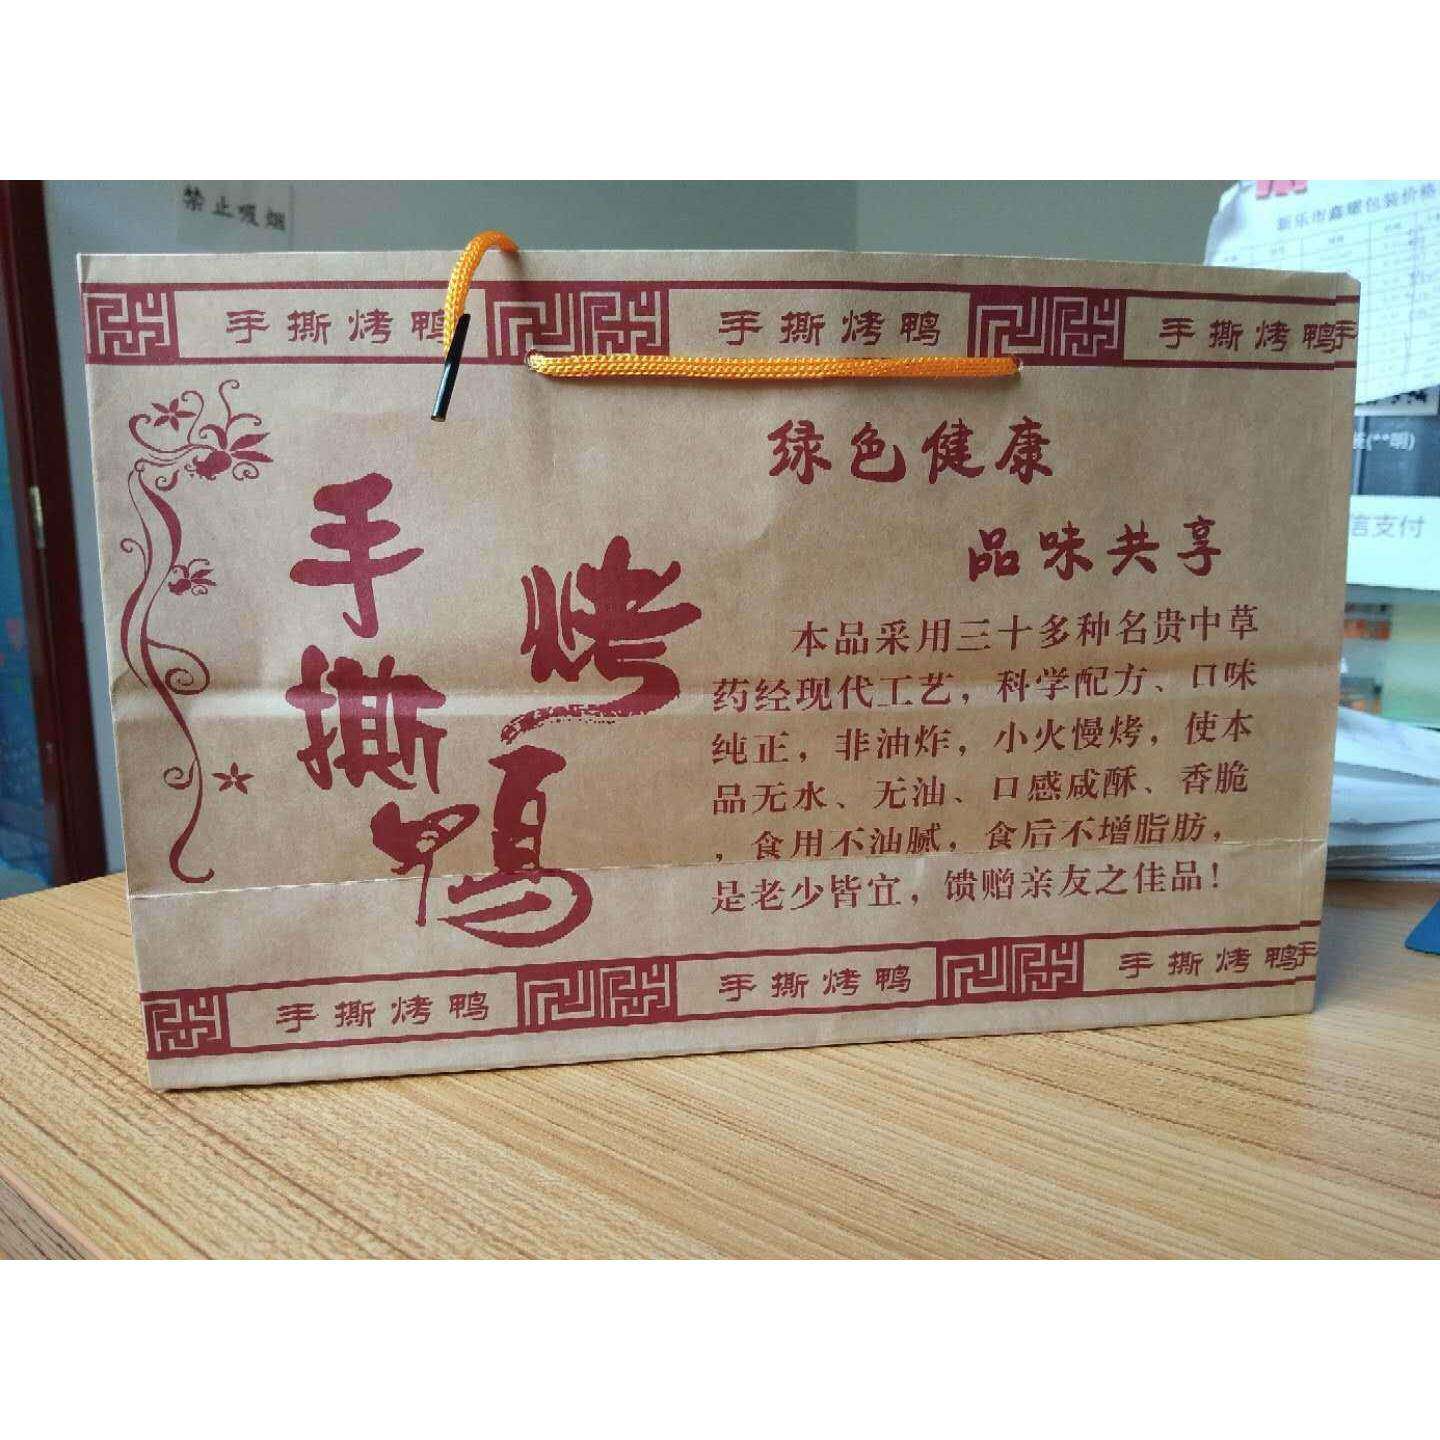 禁止吸烟
新乐市鑫耀包装价格
手撕烤鸭
手撕烤鸭
手撕烤鸭
手
绿色健康
品味共享
手撕
烤鸭
本品采用三十多种名贵中草
药经现代工艺，科学配方、口味
纯正，非油炸，小火慢烤，使本
品无水、无油、口感咸酥、香脆
，食用不油腻，食后不增脂肪，
是老少皆宜，馈赠亲友之佳品！
信支付
手撕烤鸭
手撕烤鸭
手撕烤鸭
手